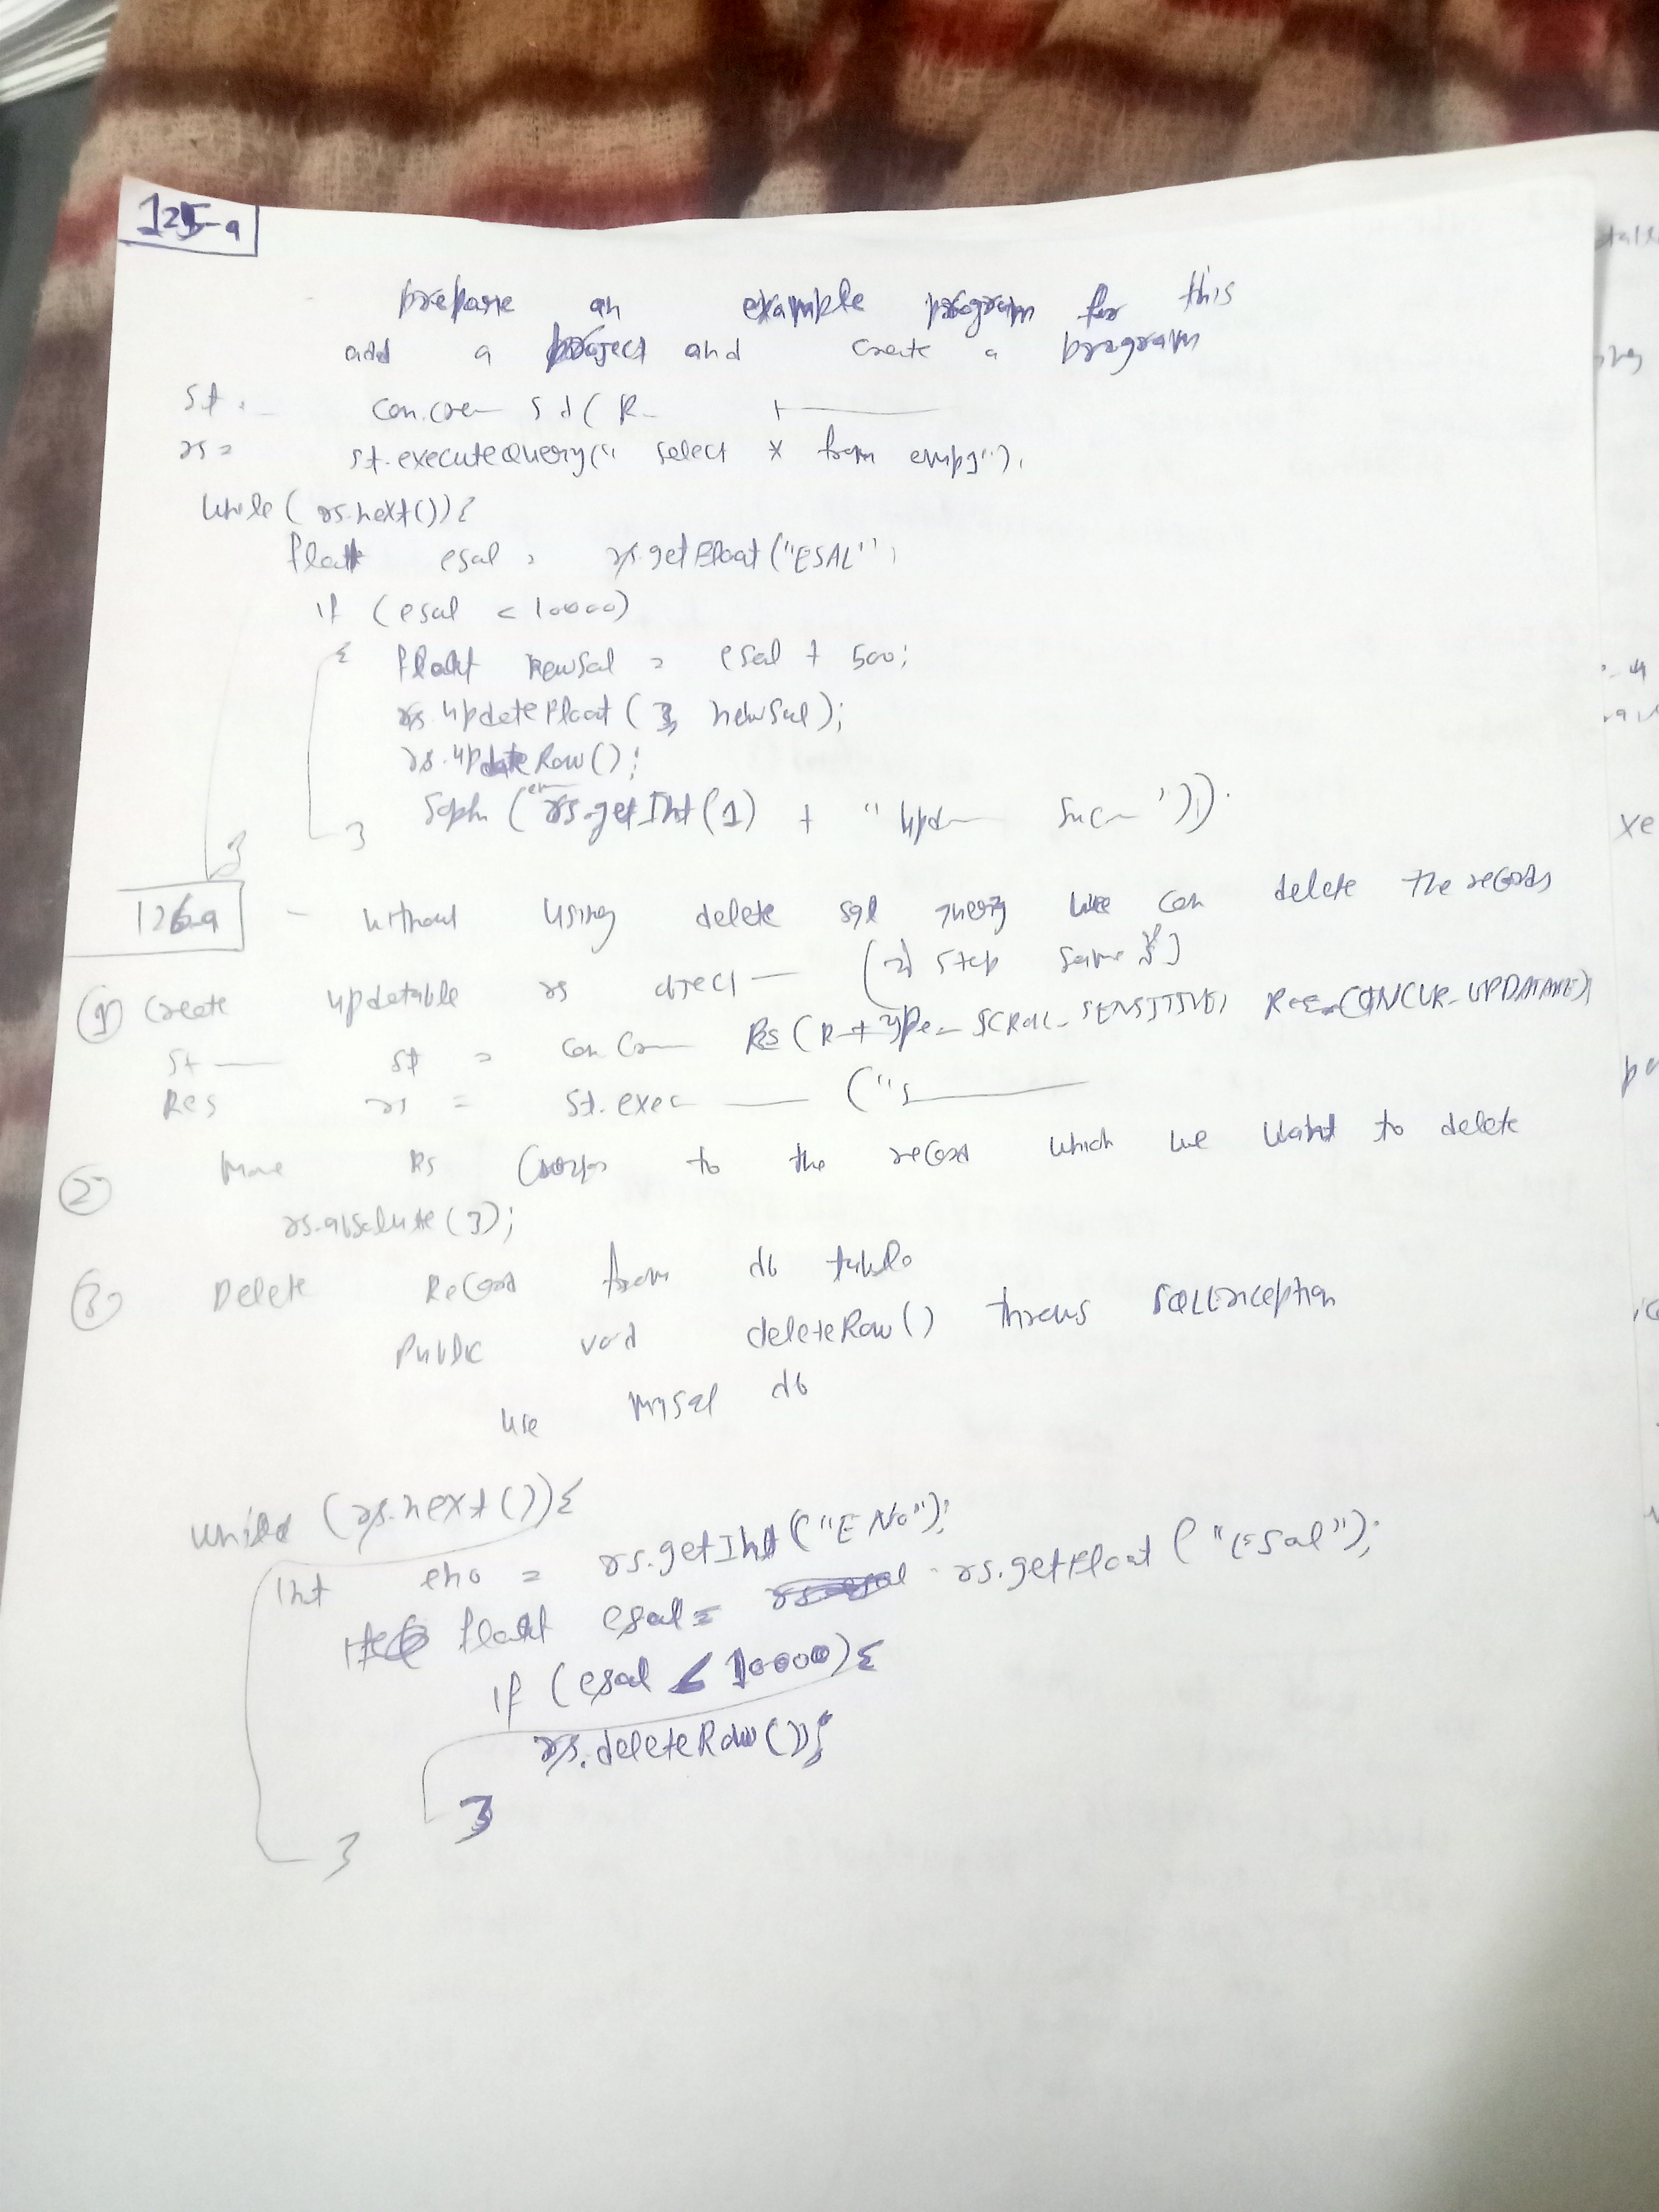 125-a
prepare an example program for this
add a project and create a program
st = con.cre st(R
rs = st.executeQuery(" select * from emp1");
while (rs.next()){
float esal = rs.getFloat("ESAL");
if (esal < 10000)
{ float newsal = esal + 500;
rs.updateFloat(3, newsal);
rs.updateRow();
Sopln (rs.getInt(1) + " upd Suc "));
}
}
126-a - without using delete sql query we can delete the records
① Create updatable rs object — (2) step same
St st = con.Cre RS(R + type_SCROLL_SENSITIVE, Res.CONCUR_UPDATABLE);
Res rs = st.exec ("s
② Move RS Cursor to the record which we want to delete
rs.absolute(3);
③ Delete Record from db table
Public void deleteRow() throws SQLException
use mysql db
while (rs.next()){
Int eno = rs.getInt("ENo");
float esal = rs.getFloat("Esal");
if (esal < 10000){
rs.deleteRow();
}
}